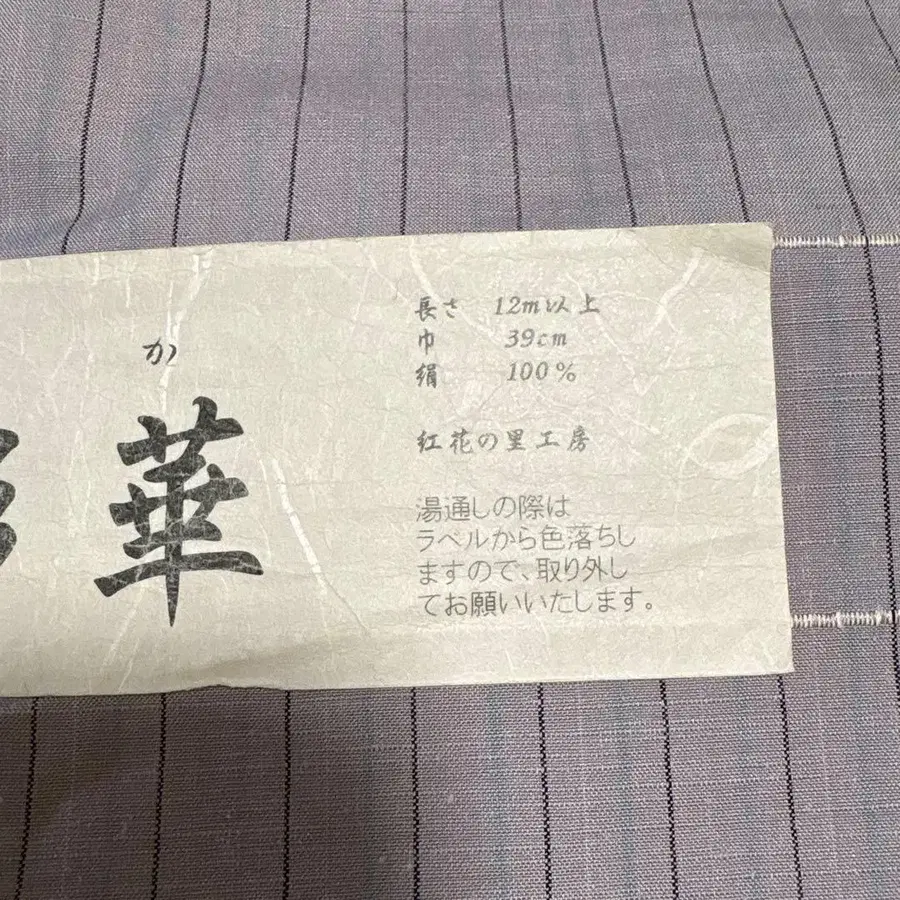 か
華
長さ 12m以上
巾 39cm
絹 100%
紅花の里工房
湯通しの際は
ラベルから色落ちし
ますので、取り外し
てお願いいたします。